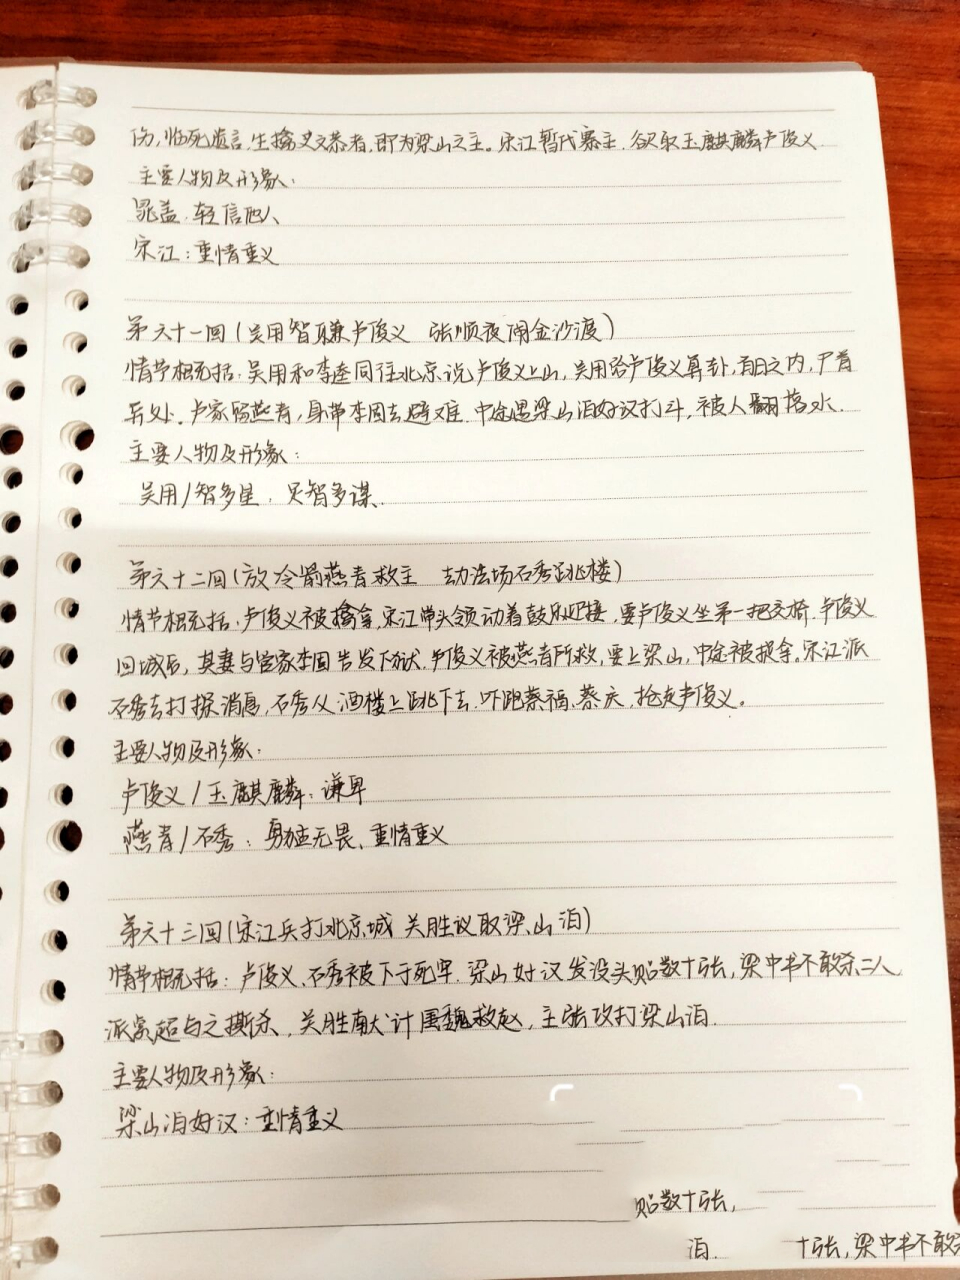 伤,临死遗言,生擒史文恭者,即为梁山之主。宋江暂代寨主.欲取玉麒麟卢俊义.
主要人物及形象:
晁盖:轻信他人
宋江:重情重义
第六十一回(吴用智赚卢俊义 张顺夜闹金沙渡)
情节概括:吴用和李逵同往北京说卢俊义上山,吴用给卢俊义算卦,百日之内,尸首
异处.卢家留燕青,身带李固去避难.中途遇梁山泊好汉打斗,被人翻落水.
主要人物及形象:
吴用/智多星,足智多谋.
第六十二回(放冷箭燕青救主 劫法场石秀跳楼)
情节概括:卢俊义被擒拿,宋江带头领动着鼓乐迎接,要卢俊义坐第一把交椅.卢俊义
回城后,其妻与管家李固告发下狱.卢俊义被燕青所救,要上梁山,中途被捉拿。宋江派
石秀去打探消息,石秀从酒楼上跳下去.吓跑蔡福、蔡庆,抢走卢俊义。
主要人物及形象:
卢俊义/玉麒麟:谦卑
燕青/石秀:勇猛无畏、重情重义
第六十三回(宋江兵打北京城 关胜议取梁山泊)
情节概括:卢俊义、石秀被下于死牢.梁山好汉发没头贴数十张,梁中书不敢杀二人,
派索超与之撕杀.关胜献计围魏救赵,主张攻打梁山泊.
主要人物及形象:
梁山泊好汉:重情重义
贴数十张,
泊. 十张,梁中书不敢杀